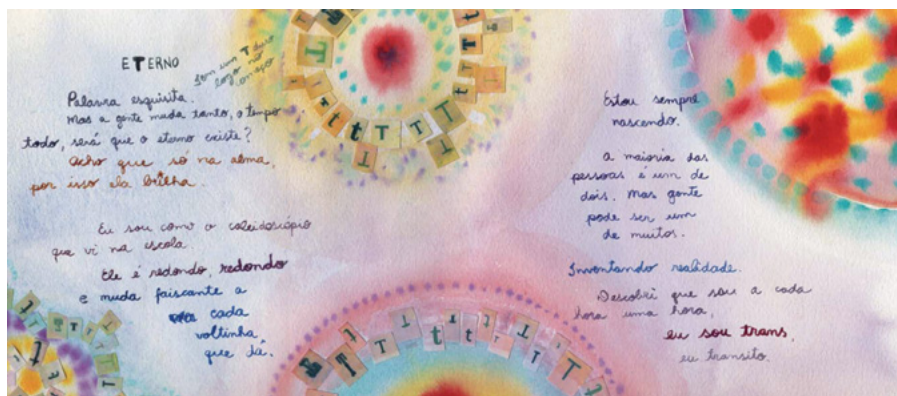 ETERNO
Tem um T duro
logo no
começo
Palavra esquisita.
Mas a gente muda tanto, o tempo
todo, será que o eterno existe?
Acho que só na alma,
por isso ela brilha.
Eu sou como o caleidoscópio
que vi na escola.
Ele é redondo, redondo
e muda faiscante a
cada
voltinha,
que dá.
Estou sempre
nascendo.
A maioria das
pessoas é um de
dois. Mas gente
pode ser um
de muitos.
Inventando realidade.
Descobri que sou a cada
hora uma hora,
eu sou trans,
eu transito.